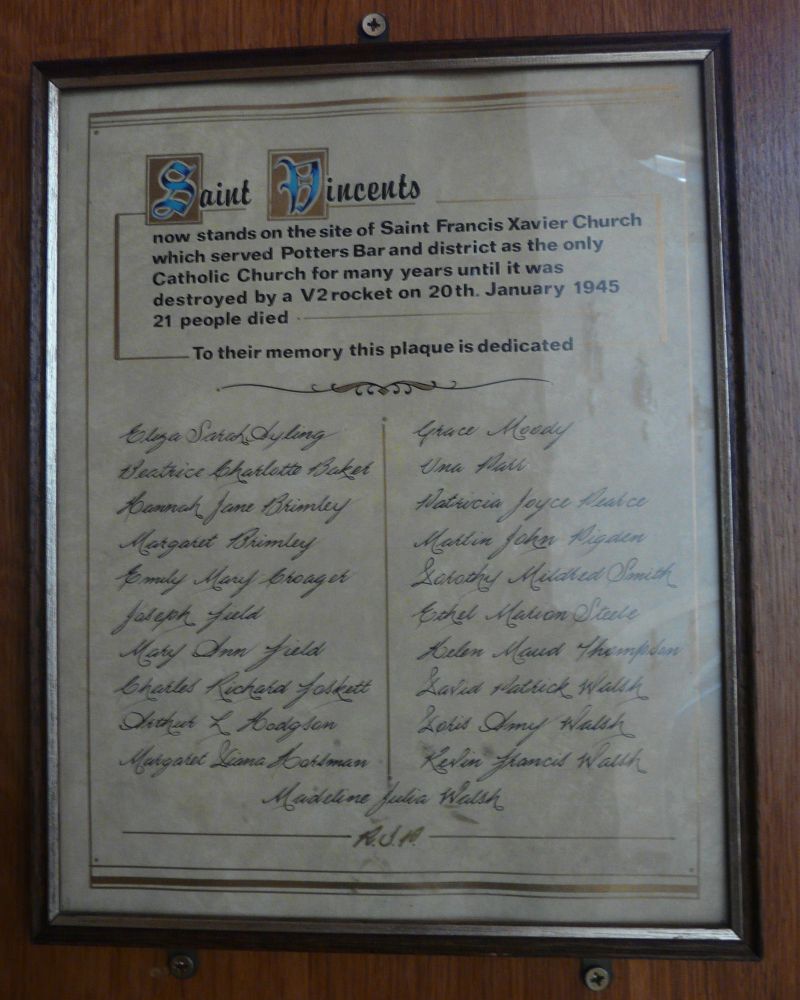 Saint Vincents
now stands on the site of Saint Francis Xavier Church
which served Potters Bar and district as the only
Catholic Church for many years until it was
destroyed by a V2 rocket on 20th. January 1945
21 people died
To their memory this plaque is dedicated
Eliza Sarah Ayling
Beatrice Charlotte Baker
Hannah Jane Brimley
Margaret Brimley
Emily Mary Croager
Joseph Field
Mary Ann Field
Charles Richard Foskett
Arthur L Hodgson
Margaret Diana Horsman
Grace Moody
Una Parr
Patricia Joyce Pearce
Martin John Pigden
Dorothy Mildred Smith
Ethel Marion Steele
Helen Maud Thompson
David Patrick Walsh
Doris Amy Walsh
Kevin Francis Walsh
Madeline Julia Walsh
R.I.P.